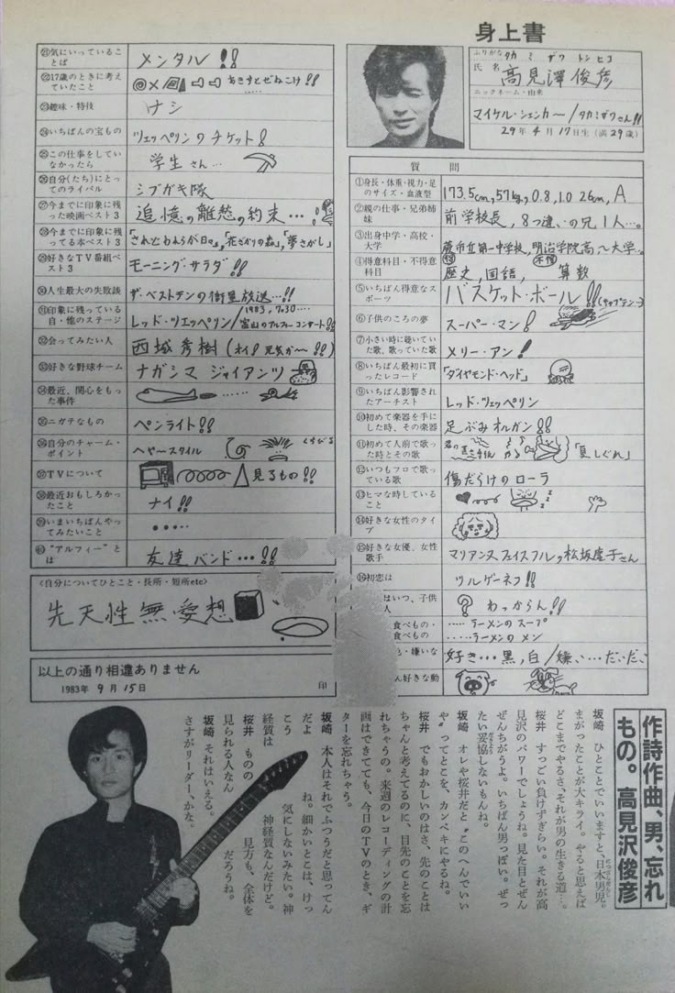 身上書
ふりがな タカ ミ ザワ トシ ヒコ
氏名 高見澤俊彦
ニックネーム・由来
マイケル・シェンカー/タカミザワさん!!
29年4月17日生(満29歳)
質問
①身長・体重・視力・足のサイズ・血液型 173.5cm, 57kg, 0.8, 1.0 26cm, A
②親の仕事・兄弟姉妹 前学校長, 8つ違いの兄1人…。
③出身中学・高校・大学 蕨市立第一中学校, 明治学院高〜大学。
④得意科目・不得意科目 歴史, 国語, 算数
⑤いちばん得意なスポーツ バスケット・ボール!!(キャプテンー)
⑥子供のころの夢 スーパー・マン!
⑦小さい時に聴いていた歌、歌っていた歌 メリー・アン!
⑧いちばん最初に買ったレコード 「ダイヤモンド・ヘッド」
⑨いちばん影響されたアーチスト レッド・ツェッペリン
⑩初めて楽器を手にした時、その楽器 足ぶみオルガン!!
⑪初めて人前で歌った時とその歌 「夏しぐれ」
⑫いつもフロで歌っている歌 傷だらけのローラ
⑬ヒマな時していること
⑭好きな女性のタイプ
⑮好きな女優、女性歌手 マリアンヌ フェイスフル, 松坂慶子さん
⑯初恋は ツルゲーネフ!!
はいつ、子供 ? わっからん!!
食べもの・ ……ラーメンのスープ
食べもの ……ラーメンのメン
・嫌いな 好き…黒, 白/嫌い…だいだい
好きな動
㉑気にいっていることば メンタル!!
㉒17歳のときに考えていたこと
㉓趣味・特技 ナシ
㉔いちばんの宝もの ツェッペリンのチケット!
㉕この仕事をしていなかったら 学生さん…
㉖自分(たち)にとってのライバル シブガキ隊
㉗今までに印象に残った映画ベスト3 追憶の離愁の約束…!
㉘今までに印象に残ってる本ベスト3 「されどわれらが日々」,「花ざかりの森」,「夢さがし」
㉙好きなTV番組ベスト3 モーニング・サラダ!!
㉚人生最大の失敗談 ザ・ベストテンの街頭放送…!!
㉛印象に残っている自・他のステージ レッド・ツェッペリン/1983, 7, 30…富山のアルフィーコンサート!!
㉜会ってみたい人 西城秀樹
㉝好きな野球チーム ナガシマ ジャイアンツ
㉞最近、関心をもった事件
㉟ニガテなもの ペンライト!!
㊱自分のチャーム・ポイント ヘヤースタイル
㊲TVについて 見るもの!!
㊳最近おもしろかったこと ナイ!!
㊴いまいちばんやってみたいこと ・・・・・
㊵"アルフィー"とは 友達バンド…!!
〈自分についてひとこと・長所・短所etc〉
先天性無愛想
以上の通り相違ありません
1983年9月15日 印
作詩作曲、男、忘れもの。 高見沢俊彦
坂崎 ひとことでいいますと、日本男児。
まがったことが大キライ。やると思えば
どこまでやるさ、それが男の生きる道…。
桜井 すっごい負けずぎらい。それが高
見沢のパワーでしょうね。見た目とぜん
ぜんちがうよ。いちばん男っぽい。ぜっ
たい妥協しないもんね。
坂崎 オレや桜井だと〝このへんでいい
や〟ってとこを、カンペキにやるね。
桜井 でもおかしいのはさ、先のことは
ちゃんと考えてるのに、目先のことを忘
れちゃうの。来週のレコーディングの計
画はできてても、今日のTVのとき、ギ
ターを忘れちゃう。
坂崎 本人はそれでふつうだと思ってん
だよね。細かいとこは、けっ
こう気にしないみたい。神
経質は神経質なんだけど。
桜井 ものの見方も、全体を
見られる人なんだろうね。
坂崎 それはいえる。
さすがリーダー、かな。